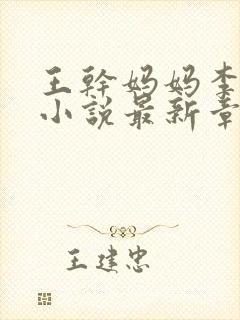 王幹妈妈李
小说最新章
王建忠